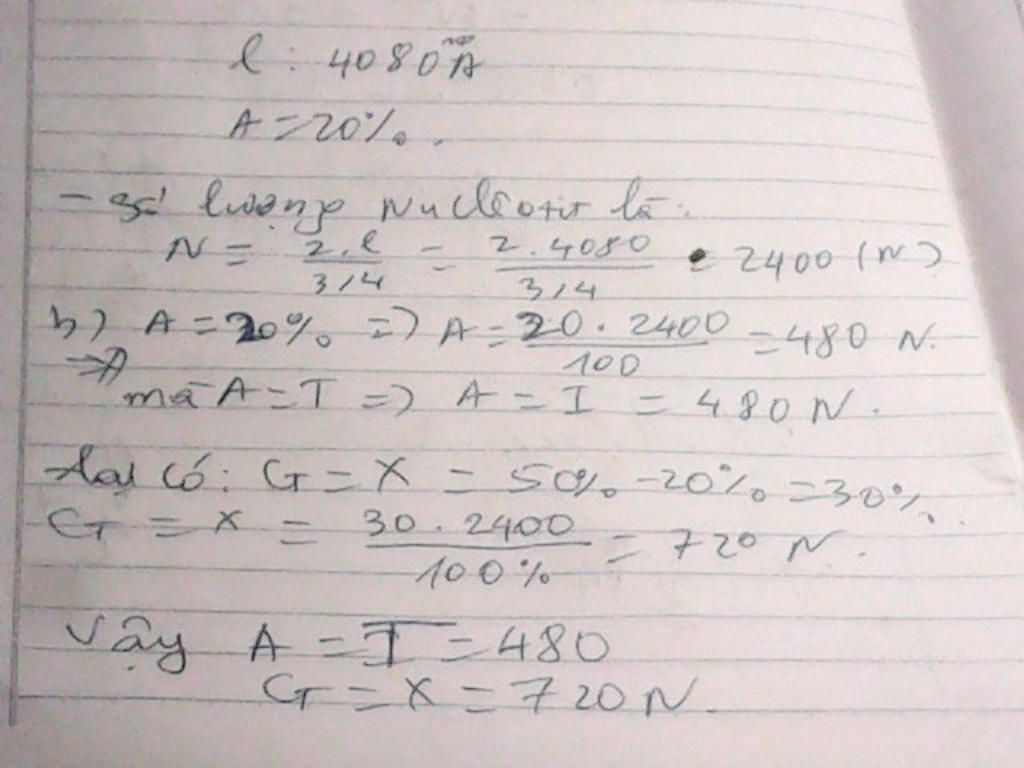 l : 4080 A
A = 20%.
- Số lượng Nuclêotit là:
N = 2.l / 3,4 = 2.4080 / 3,4 = 2400 (N)
b) A = 20% => A = 20.2400 / 100 = 480 N.
=> A
mà A = T => A = T = 480 N.
lại có: G = X = 50% - 20% = 30%.
G = X = 30.2400 / 100% = 720 N.
Vậy A = T = 480
G = X = 720 N.